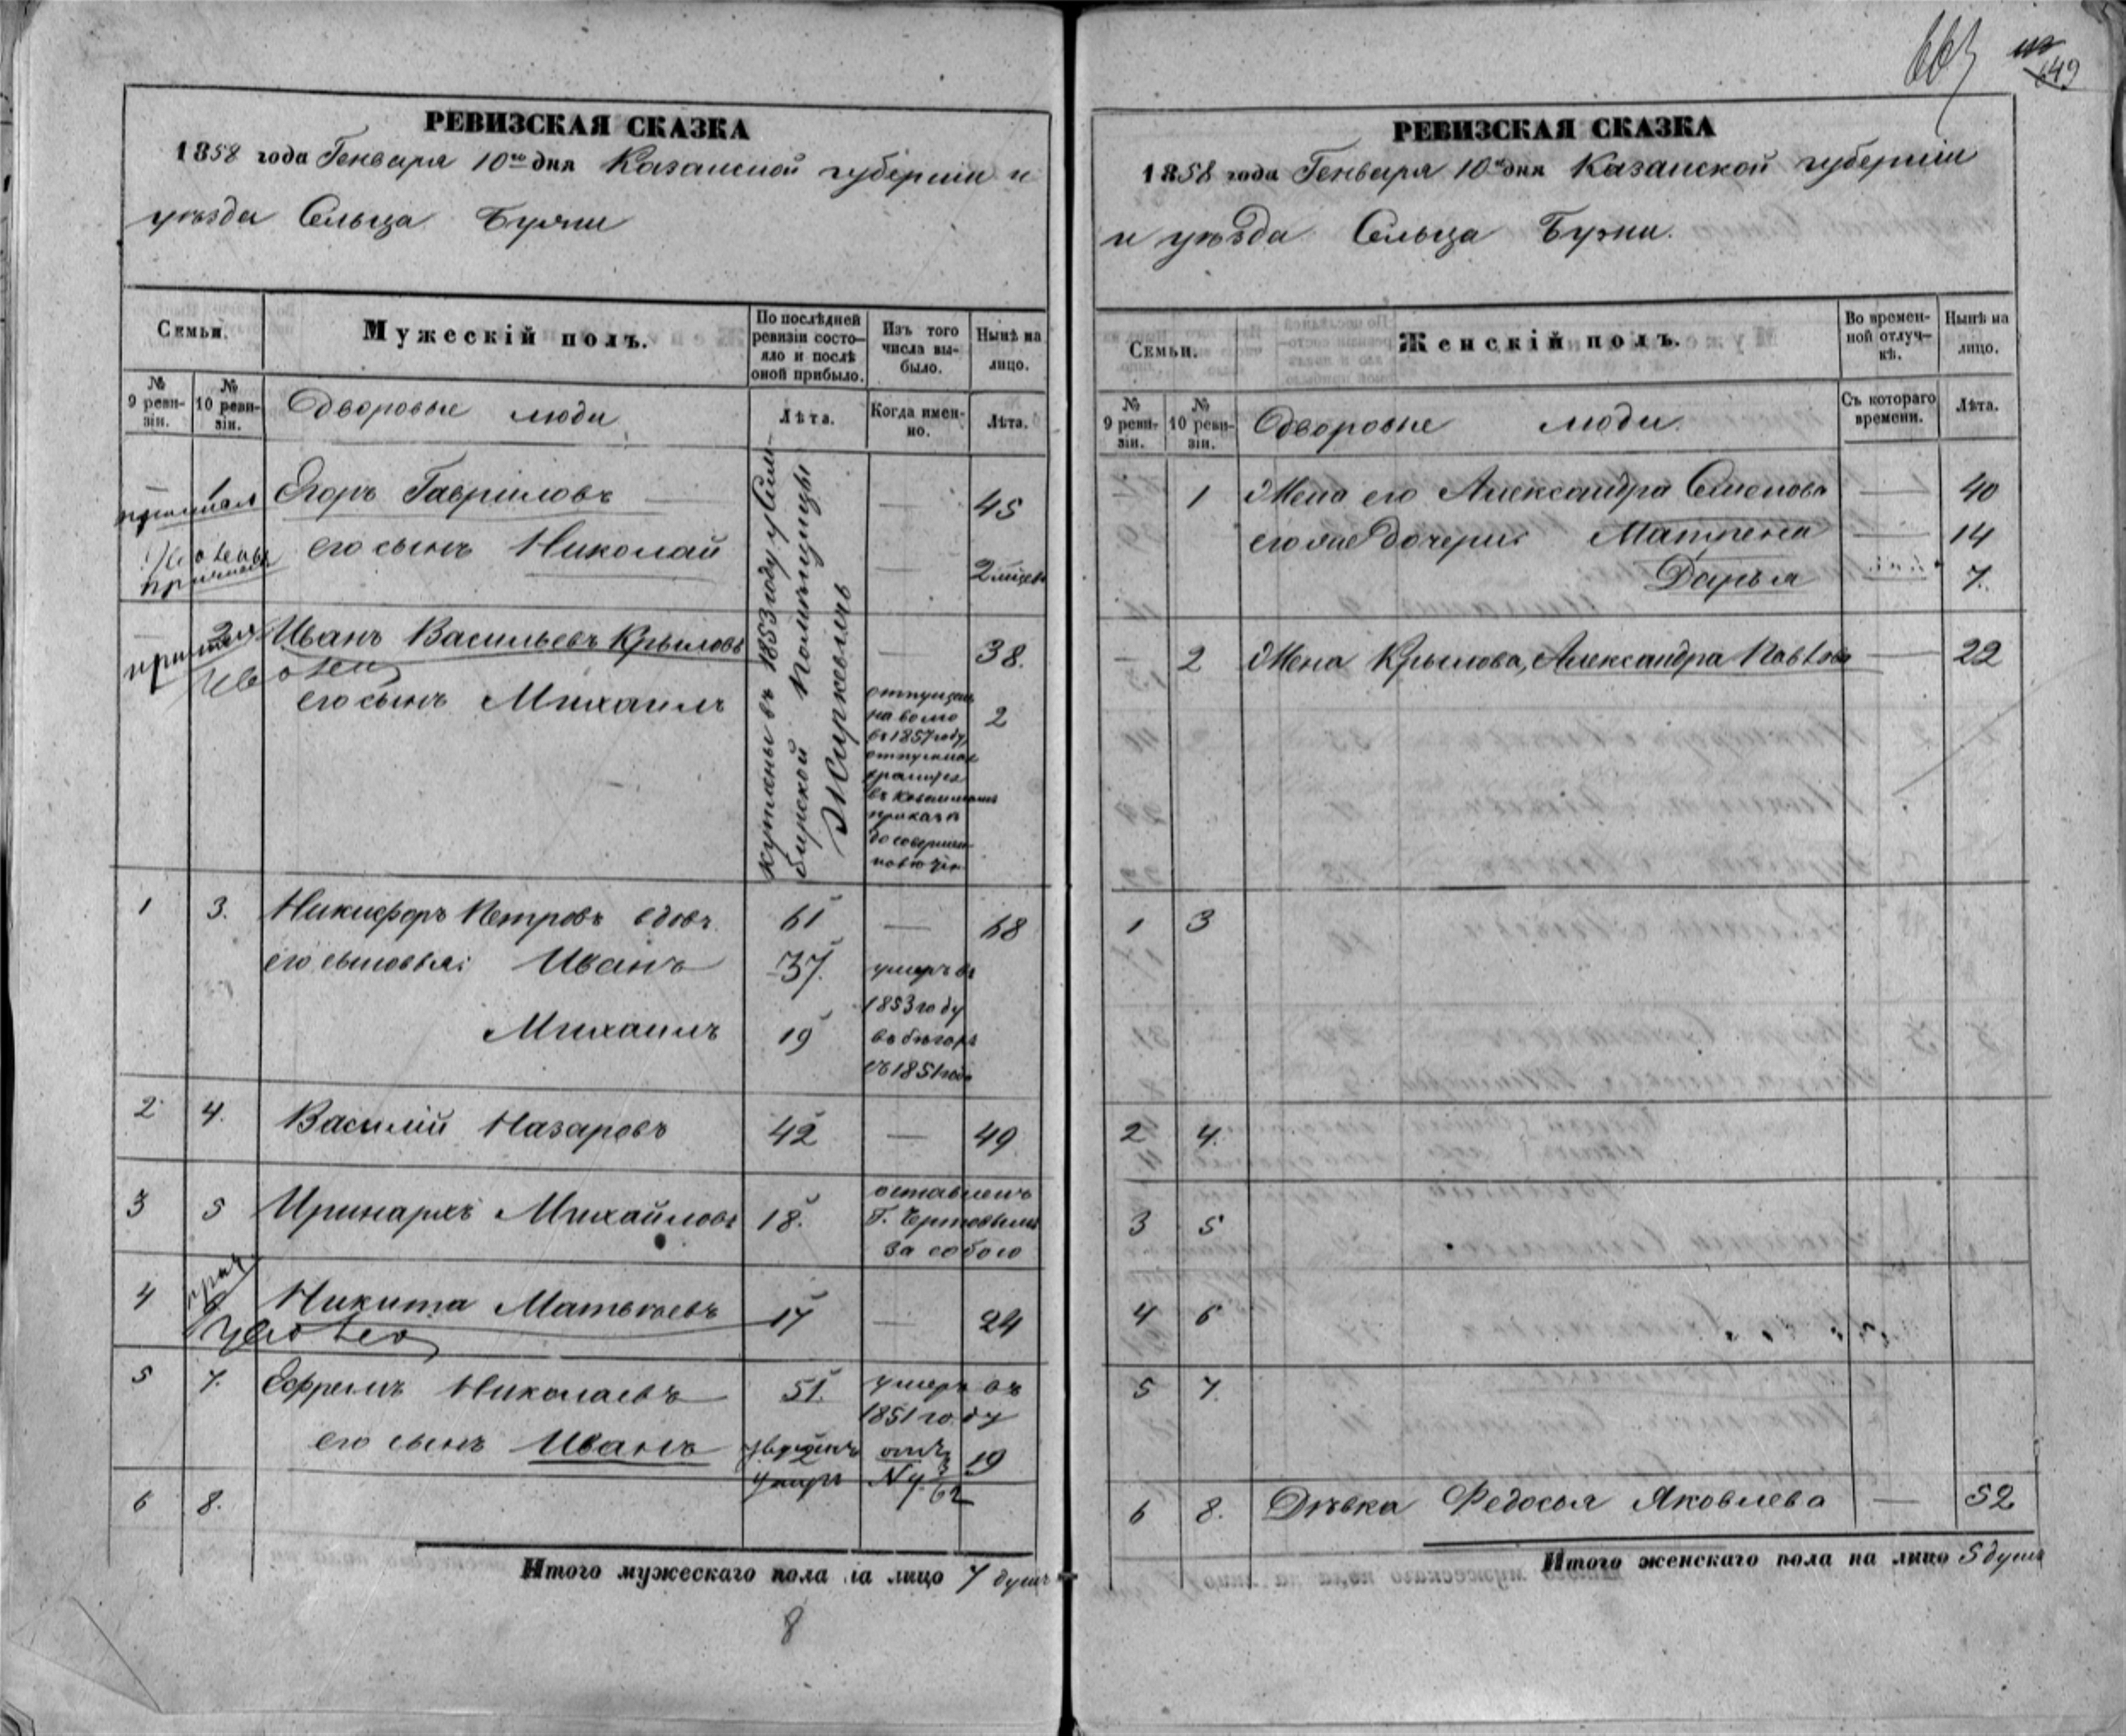 649
РЕВИЗСКАЯ СКАЗКА
1858 года Генваря 10го дня Казанской губернии и
уезда Сельца Бурчи
Семьи.
Мужескій полъ.
По послѣдней ревизіи состо-яло и послѣ оной прибыло.
Изъ того числа вы-было.
Нынѣ на лицо.
№ 9 реви-зіи.
№ 10 реви-зіи.
Дворовые люди
Лѣта.
Когда имен-но.
Лѣта.
1 Егоръ Гавриловъ — 45
его сынъ Николай — 2 месец
2 Иванъ Васильевъ Крыловъ — 38.
его сынъ Михаилъ 2
куплены въ 1853 году у Сим-
бирской помещицы
Жиркевичь
отпущенъ
на волю
въ 1857 году,
отпускная
хранится
въ Казанскомъ
приказе
до совершен
1 3. Никифоръ Петровъ вдовъ. 61 — 68
его сыновья: Иванъ 37. умеръ въ
1853 году
Михаилъ 19 въ бегахъ
съ 1851 года
2 4. Василий Назаровъ 42 — 49
3 5 Иринархъ Михайловъ 18. оставленъ
Г. Чертовымъ
за собою
4 6 Никита Матвеевъ 17 — 24
5 7. Ефремъ Николаевъ 51. умеръ въ
1851 году
его сынъ Иванъ 19
6 8.
Итого мужескаго пола на лицо 7 душъ
8
РЕВИЗСКАЯ СКАЗКА
1858 года Генваря 10го дня Казанской губернии
и уезда Сельца Бурчи.
Семьи.
Женскій полъ.
Во времен-ной отлуч-кѣ.
Нынѣ на лицо.
№ 9 реви-зіи.
№ 10 реви-зіи.
Дворовые люди.
Съ котораго времени.
Лѣта.
1 Жена его Александра Семенова — 40
его дочери: Матрена — 14
Дарья 7.
2 Жена Крылова, Александра Павлова — 22
1 3
2 4.
3 5
4 6
5 7.
6 8. Девка Федосья Яковлева — 52
Итого женскаго пола на лицо 5 душъ